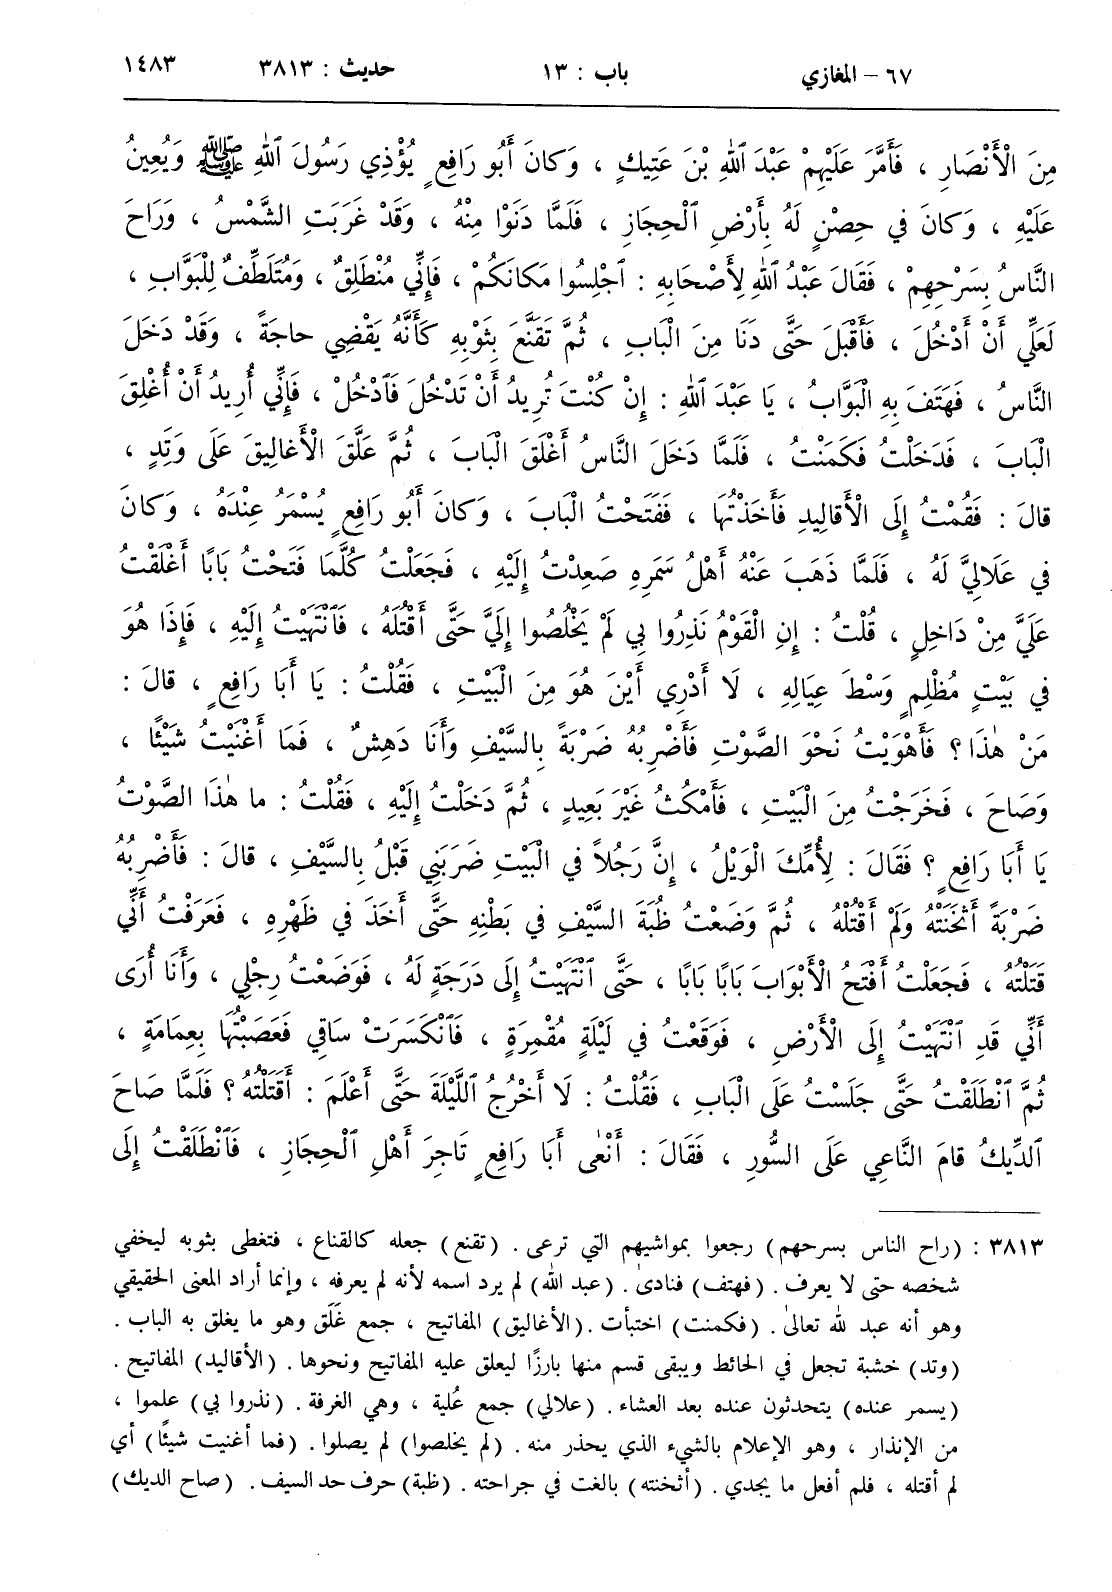 ٦٧ – المغازي باب : ١٣ حديث : ٣٨١٣ ١٤٨٣
مِنَ الْأَنْصَارِ ، فَأَمَّرَ عَلَيْهِمْ عَبْدَ ٱللهِ بْنَ عَتِيكٍ ، وَكانَ أَبُو رَافِعٍ يُؤْذِي رَسُولَ ٱللهِ ﷺ وَيُعِينُ
عَلَيْهِ ، وَكانَ في حِصْنٍ لَهُ بِأَرْضِ ٱلْحِجَازِ ، فَلَمَّا دَنَوْا مِنْهُ ، وَقَدْ غَرَبَتِ الشَّمْسُ ، وَرَاحَ
النَّاسُ بِسَرْحِهِمْ ، فَقَالَ عَبْدُ ٱللهِ لِأَصْحَابِهِ : ٱجْلِسُوا مَكانَكُمْ ، فَإِنِّي مُنْطَلِقٌ ، وَمُتَلَطِّفٌ لِلْبَوَّابِ ،
لَعَلِّي أَنْ أَدْخُلَ ، فَأَقْبَلَ حَتَّى دَنَا مِنَ الْبَابِ ، ثُمَّ تَقَنَّعَ بِثَوْبِهِ كَأَنَّهُ يَقْضِي حاجَةً ، وَقَدْ دَخَلَ
النَّاسُ ، فَهَتَفَ بِهِ الْبَوَّابُ ، يا عَبْدَ ٱللهِ : إِنْ كُنْتَ تُرِيدُ أَنْ تَدْخُلَ فَٱدْخُلْ ، فَإِنِّي أُرِيدُ أَنْ أُغْلِقَ
الْبَابَ ، فَدَخَلْتُ فَكَمَنْتُ ، فَلَمَّا دَخَلَ النَّاسُ أَغْلَقَ الْبَابَ ، ثُمَّ عَلَّقَ الْأَغالِيقَ عَلَى وَتِدٍ ،
قالَ : فَقُمْتُ إِلَى الْأَقالِيدِ فَأَخَذْتُهَا ، فَفَتَحْتُ الْبَابَ ، وَكانَ أَبُو رَافِعٍ يُسْمَرُ عِنْدَهُ ، وَكانَ
في عَلَالِيَّ لَهُ ، فَلَمَّا ذَهَبَ عَنْهُ أَهْلُ سَمَرِهِ صَعِدْتُ إِلَيْهِ ، فَجَعَلْتُ كُلَّمَا فَتَحْتُ بَابًا أَغْلَقْتُ
عَلَيَّ مِنْ دَاخِلٍ ، قُلْتُ : إِنِ الْقَوْمُ نَذِرُوا بِي لَمْ يَخْلُصُوا إِلَيَّ حَتَّى أَقْتُلَهُ ، فَٱنْتَهَيْتُ إِلَيْهِ ، فَإِذَا هُوَ
في بَيْتٍ مُظْلِمٍ وَسْطَ عِيَالِهِ ، لَا أَدْرِي أَيْنَ هُوَ مِنَ الْبَيْتِ ، فَقُلْتُ : يَا أَبَا رَافِعٍ ، قالَ :
مَنْ هٰذَا ؟ فَأَهْوَيْتُ نَحْوَ الصَّوْتِ فَأَضْرِبُهُ ضَرْبَةً بِالسَّيْفِ وَأَنَا دَهِشٌ ، فَمَا أَغْنَيْتُ شَيْئًا ،
وَصَاحَ ، فَخَرَجْتُ مِنَ الْبَيْتِ ، فَأَمْكُثُ غَيْرَ بَعِيدٍ ، ثُمَّ دَخَلْتُ إِلَيْهِ ، فَقُلْتُ : ما هٰذَا الصَّوْتُ
يَا أَبَا رَافِعٍ ؟ فَقَالَ : لِأُمِّكَ الْوَيْلُ ، إِنَّ رَجُلاً في الْبَيْتِ ضَرَبَنِي قَبْلُ بِالسَّيْفِ ، قالَ : فَأَضْرِبُهُ
ضَرْبَةً أَثْخَنَتْهُ وَلَمْ أَقْتُلْهُ ، ثُمَّ وَضَعْتُ ظُبَةَ السَّيْفِ في بَطْنِهِ حَتَّى أَخَذَ في ظَهْرِهِ ، فَعَرَفْتُ أَنِّي
قَتَلْتُهُ ، فَجَعَلْتُ أَفْتَحُ الْأَبْوَابَ بَابًا بَابًا ، حَتَّى ٱنْتَهَيْتُ إِلَى دَرَجَةٍ لَهُ ، فَوَضَعْتُ رِجْلِي ، وَأَنَا أُرَى
أَنِّي قَدِ ٱنْتَهَيْتُ إِلَى الْأَرْضِ ، فَوَقَعْتُ في لَيْلَةٍ مُقْمِرَةٍ ، فَٱنْكَسَرَتْ سَاقِي فَعَصَبْتُهَا بِعِمَامَةٍ ،
ثُمَّ ٱنْطَلَقْتُ حَتَّى جَلَسْتُ عَلَى الْبَابِ ، فَقُلْتُ : لَا أَخْرُجُ اللَّيْلَةَ حَتَّى أَعْلَمَ : أَقَتَلْتُهُ ؟ فَلَمَّا صَاحَ
ٱلدِّيكُ قامَ النَّاعِي عَلَى السُّورِ ، فَقَالَ : أَنْعٰى أَبَا رَافِعٍ تَاجِرَ أَهْلِ ٱلْحِجَازِ ، فَٱنْطَلَقْتُ إِلَى
٣٨١٣ : (راح الناس بسرحهم) رجعوا بمواشيهم التي ترعى . (تقنع) جعله كالقناع ، فتغطى بثوبه ليخفي
شخصه حتى لا يعرف . (فهتف) فنادىٰ . (عبد الله) لم يرد اسمه لأنه لم يعرفه ، وإنما أراد المعنى الحقيقي
وهو أنه عبد لله تعالىٰ . (فكمنت) اختبأت . (الأغاليق) المفاتيح ، جمع غَلَق وهو ما يغلق به الباب .
(وتد) خشبة تجعل في الحائط ويبقى قسم منها بارزًا ليعلق عليه المفاتيح ونحوها . (الأقاليد) المفاتيح .
(يسمر عنده) يتحدثون عنده بعد العشاء . (علالي) جمع عُلية ، وهي الغرفة . (نذروا بي) علموا ،
من الإنذار ، وهو الإعلام بالشيء الذي يحذر منه . (لم يخلصوا) لم يصلوا . (فما أغنيت شيئًا) أي
لم أقتله ، فلم أفعل ما يجدي . (أثخنته) بالغت في جراحته . (ظبة) حرف حد السيف . (صاح الديك)